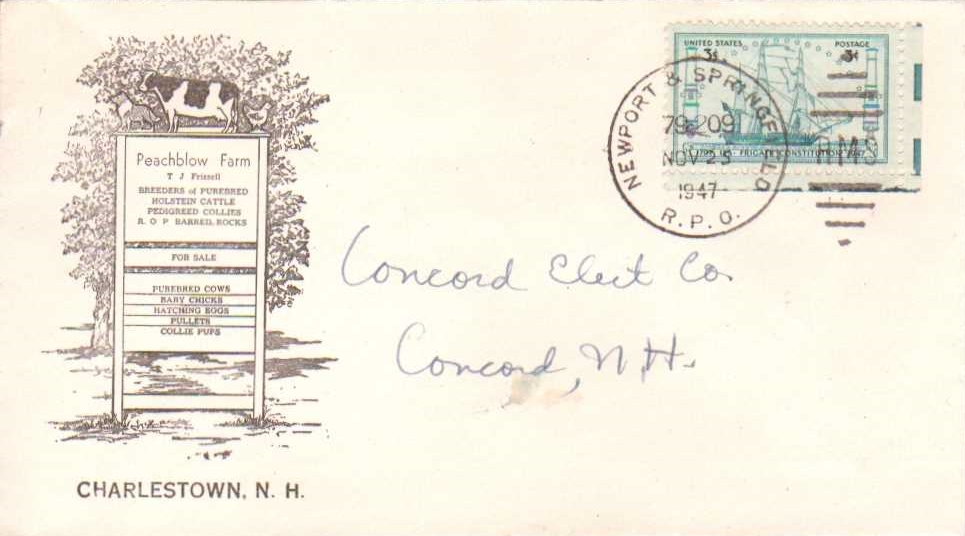 Peachblow Farm
T J Frizzell
BREEDERS of PUREBRED
HOLSTEIN CATTLE
PEDIGREED COLLIES
R. O P BARRED, ROCKS
FOR SALE
PUREBRED COWS
BABY CHICKS
HATCHING EGGS
PULLETS
COLLIE PUPS
CHARLESTOWN, N. H.
UNITED STATES POSTAGE
3¢ 3¢
U.S. FRIGATE CONSTITUTION 1947
NEWPORT & SPRINGFIELD
NOV 25
1947
R. P. O.
RMS
Concord Elect Co.
Concord, N.H.